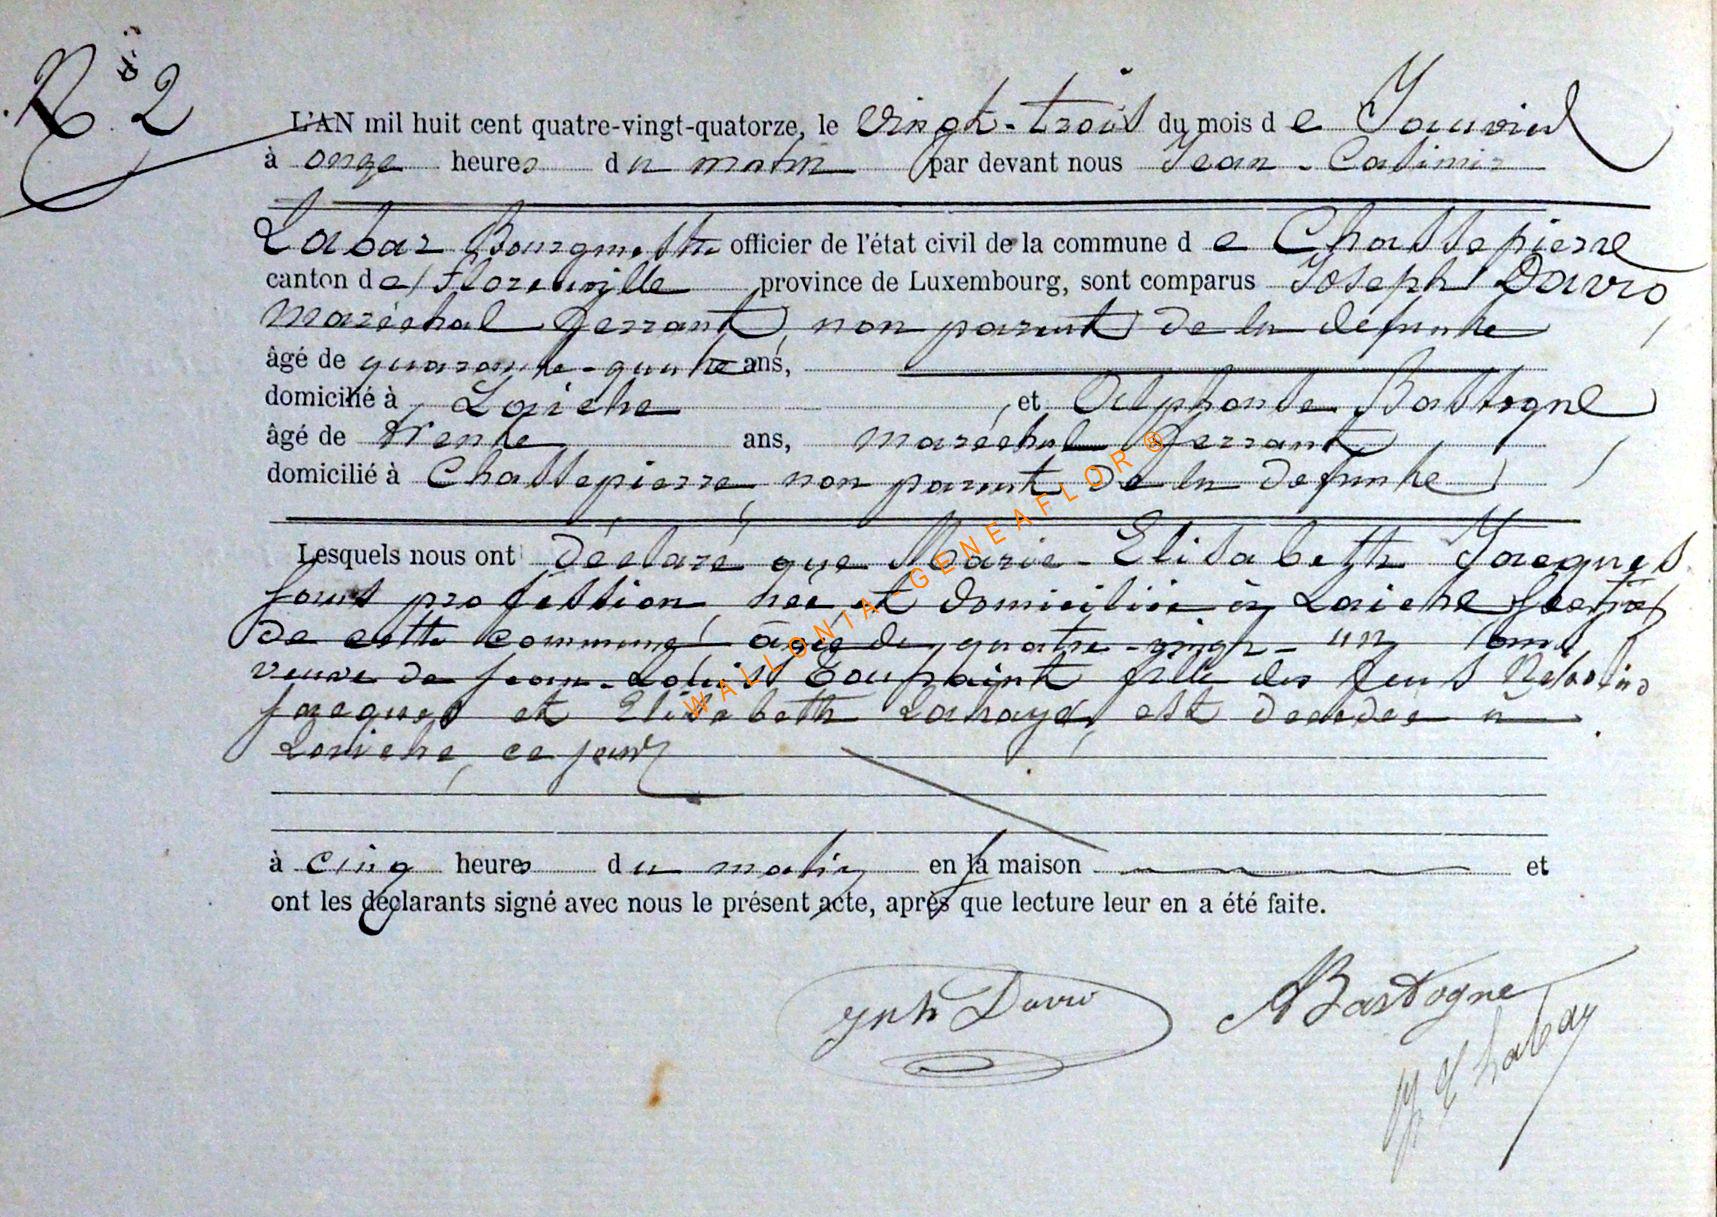 No 2
L'AN mil huit cent quatre-vingt-quatorze, le vingt-trois du mois de Janvier
à onze heures du matin par devant nous Jean-Casimir
Labar Bourgmestre officier de l'état civil de la commune de Chassepierre
canton de Florenville province de Luxembourg, sont comparus Joseph Davio
maréchal ferrant, non parent de la défunte
âgé de quarante-quatre ans,
domicilié à Laiche et Alphonse Bastogne
âgé de trente ans, maréchal ferrant,
domicilié à Chassepierre, non parent de la defunte
Lesquels nous ont déclaré que Marie-Elisabeth Jacques
sans profession née et domiciliée à Laiche section
de cette commune, âgée de quatre-vingt-un ans
veuve de Jean-Louis Toussaint fille des feus
Jacques et Elisabeth Lahaye, est décédée à
Laiche, ce jour
à cinq heures du matin en sa maison et
ont les déclarants signé avec nous le présent acte, après que lecture leur en a été faite.
Jph Davio ABastogne
Labar
WALLONIA-GENEAFLOR®